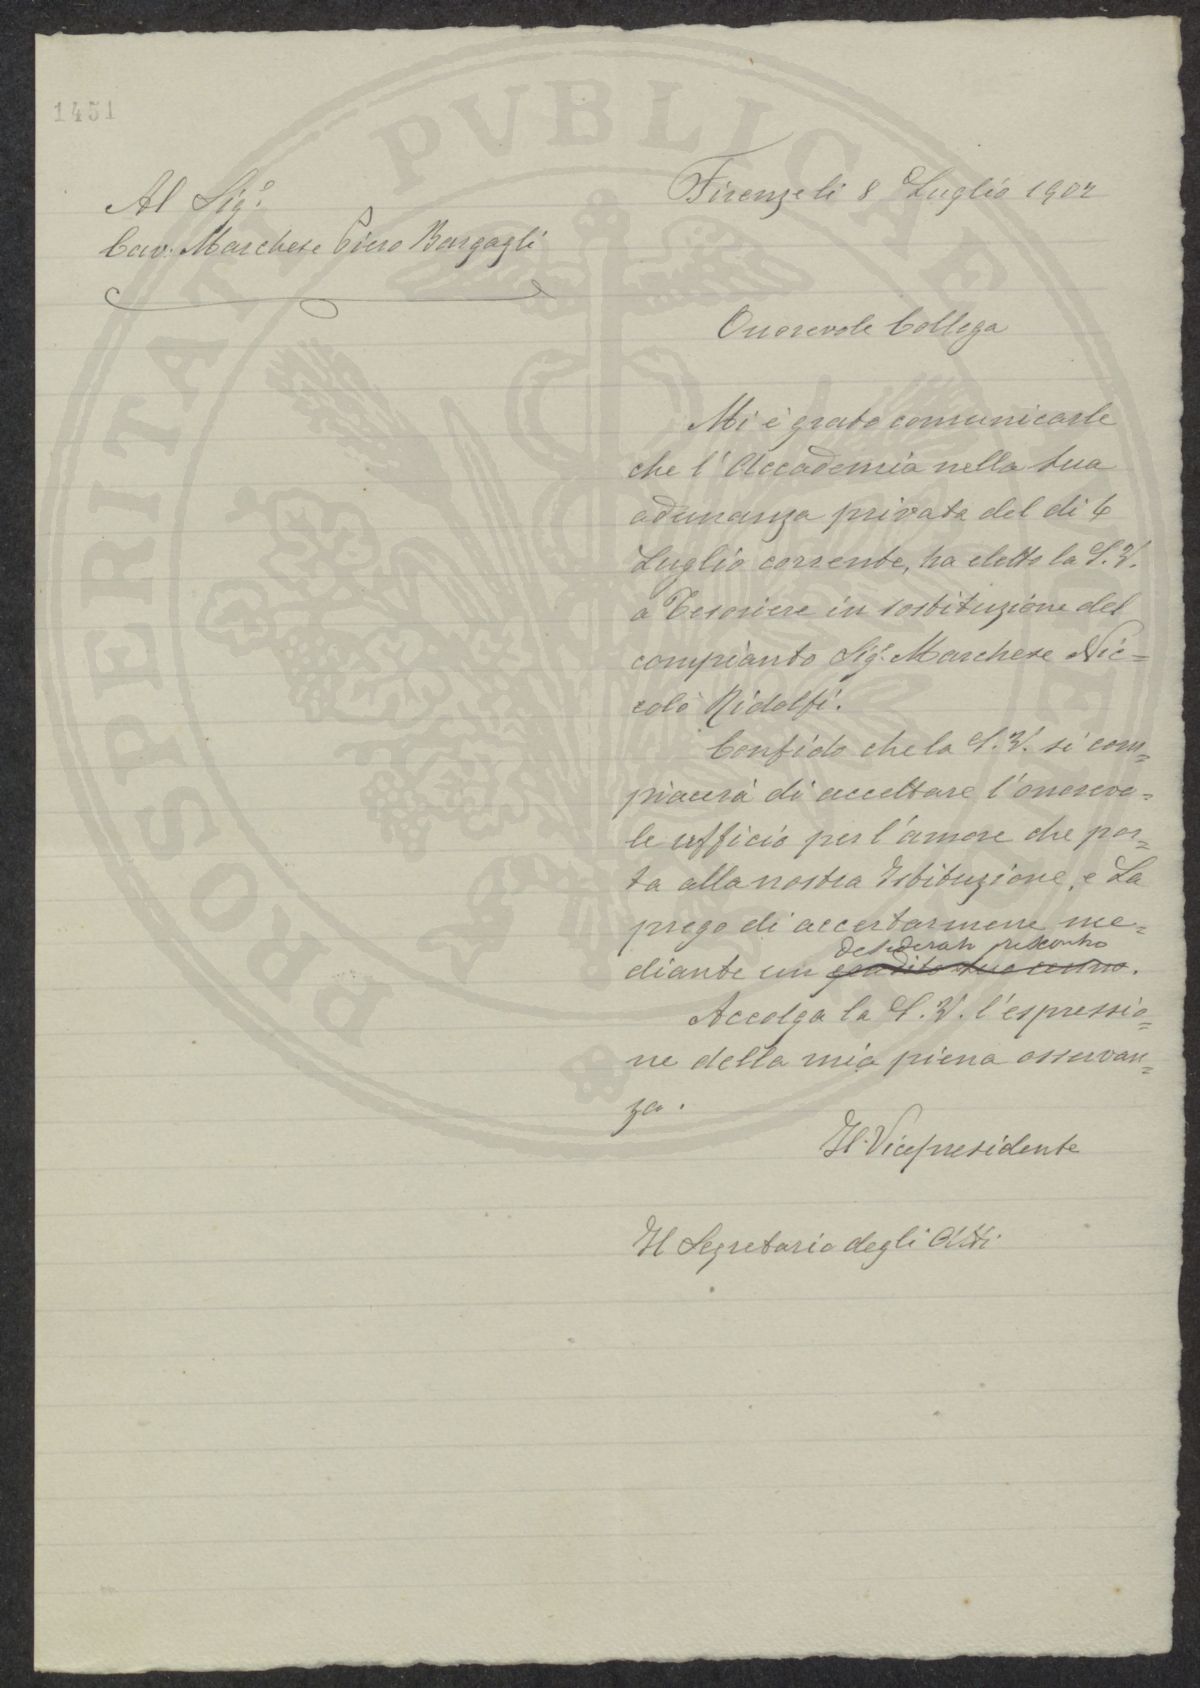 PROSPERITATI PVBLICAE
1451
Al Sig.r
Cav. Marchese Piero Bargagli
Firenze li 8 Luglio 1902
Onorevole Collega
Mi è grato comunicarle
che l'Accademia nella sua
adunanza privata del dì 6
Luglio corrente, ha eletto la S.V.
a Tesoriere in sostituzione del
compianto Sig.r Marchese Nic=
colò Ridolfi.
Confido che la S.V. si com=
piacerà di accettare l'onorevo=
le ufficio per l'amore che por=
ta alla nostra Istituzione, e La
prego di accertarmene me=
desiderato riscontro
diante un gradito suo cenno.
Accolga la S.V. l'espressio=
ne della mia piena osservan=
za.
Il Vicepresidente
Il Segretario degli Atti